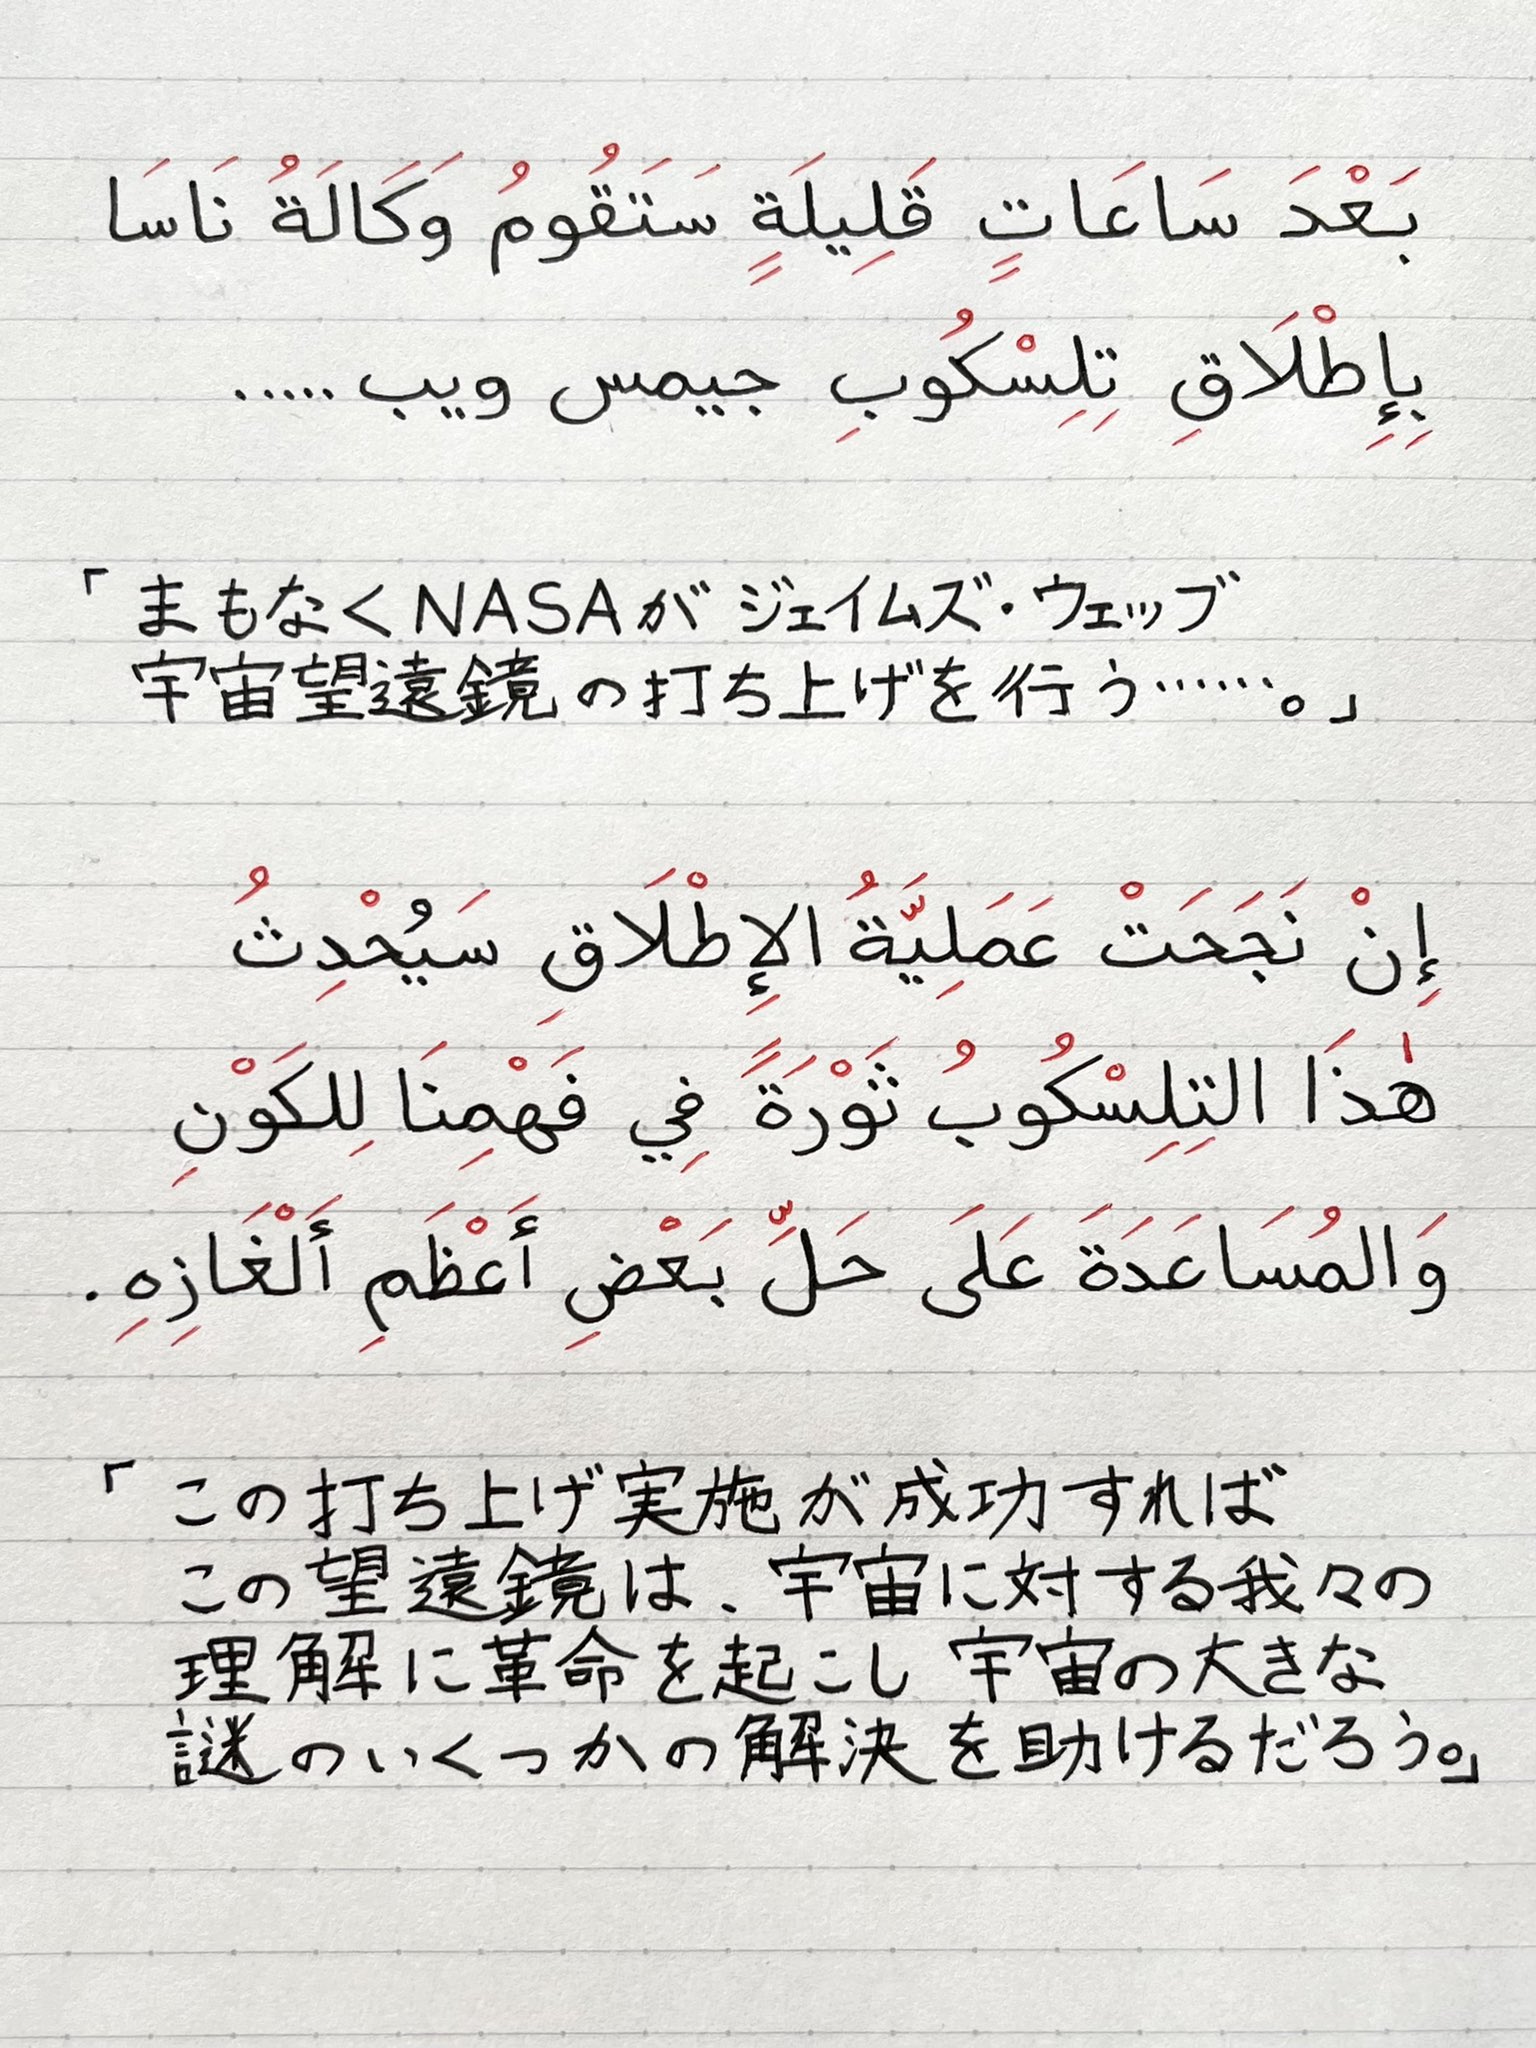 بَعْدَ سَاعَاتٍ قَلِيلَةٍ سَتَقُومُ وَكَالَةُ نَاسَا
بِإِطْلَاقِ تِلِسْكُوبِ جيمس ويب .....
「まもなくNASAがジェイムズ・ウェッブ
宇宙望遠鏡の打ち上げを行う……。」
إِنْ نَجَحَتْ عَمَلِيَّةُ الإِطْلَاقِ سَيُحْدِثُ
هٰذَا التِلِسْكُوبُ ثَوْرَةً فِي فَهْمِنَا لِلكَوْنِ
وَالمُسَاعَدَةَ عَلَى حَلِّ بَعْضِ أَعْظَمِ أَلْغَازِهِ .
「この打ち上げ実施が成功すれば
この望遠鏡は、宇宙に対する我々の
理解に革命を起こし 宇宙の大きな
謎のいくつかの解決を助けるだろう。」